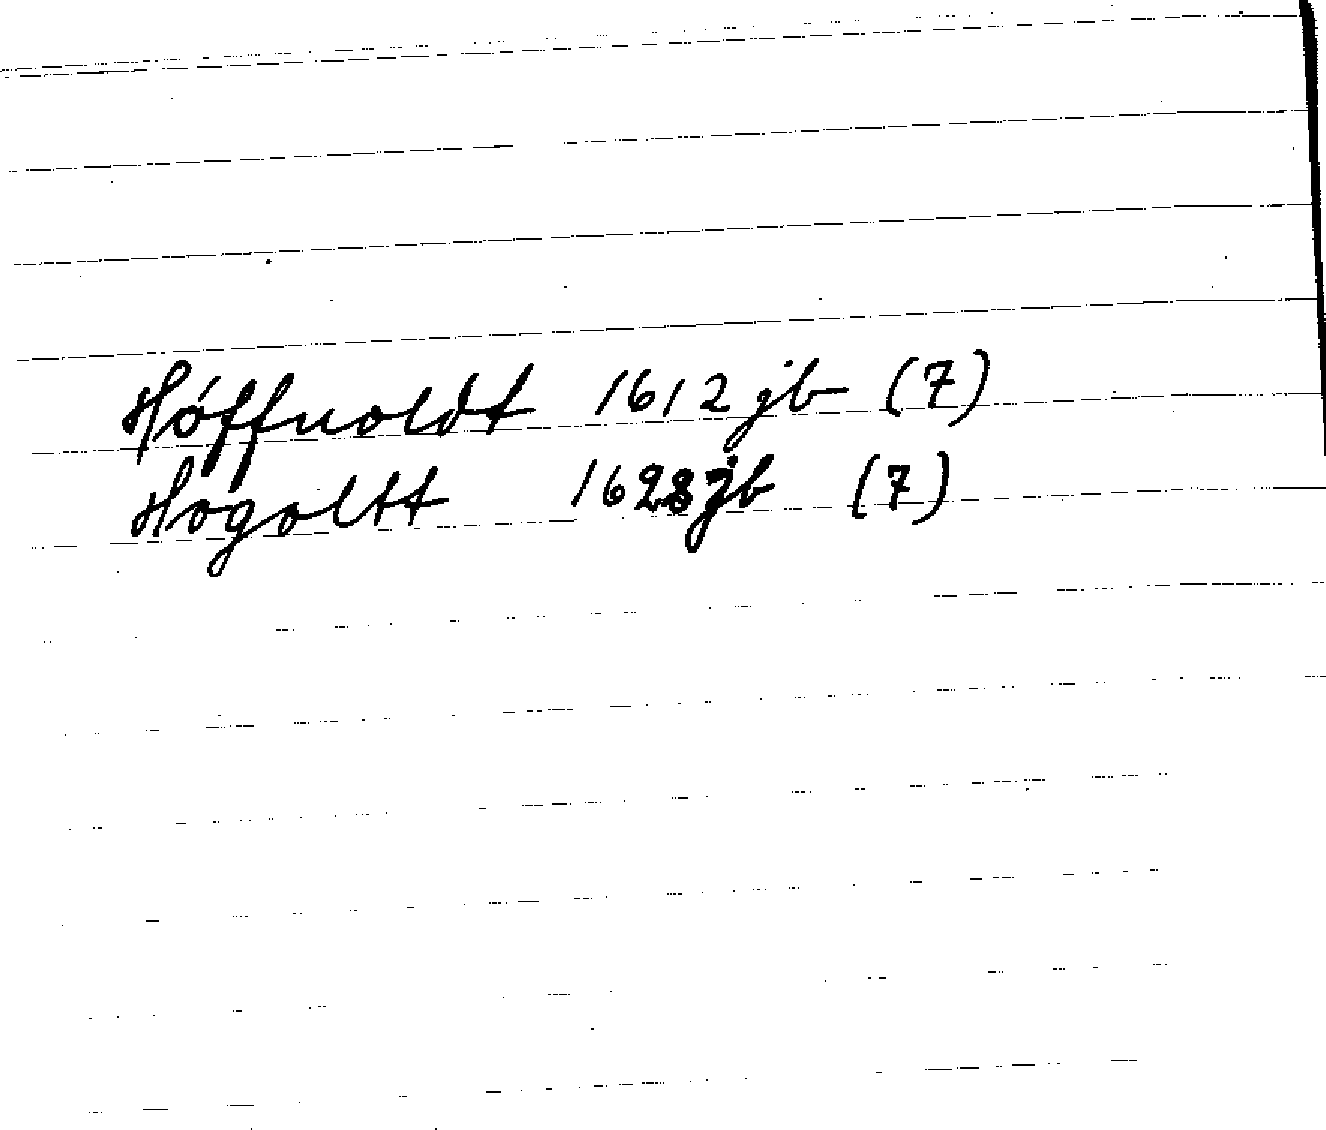 Hóffuoldt 1612 jb (7)
Hogoltt 1628 jb (7)